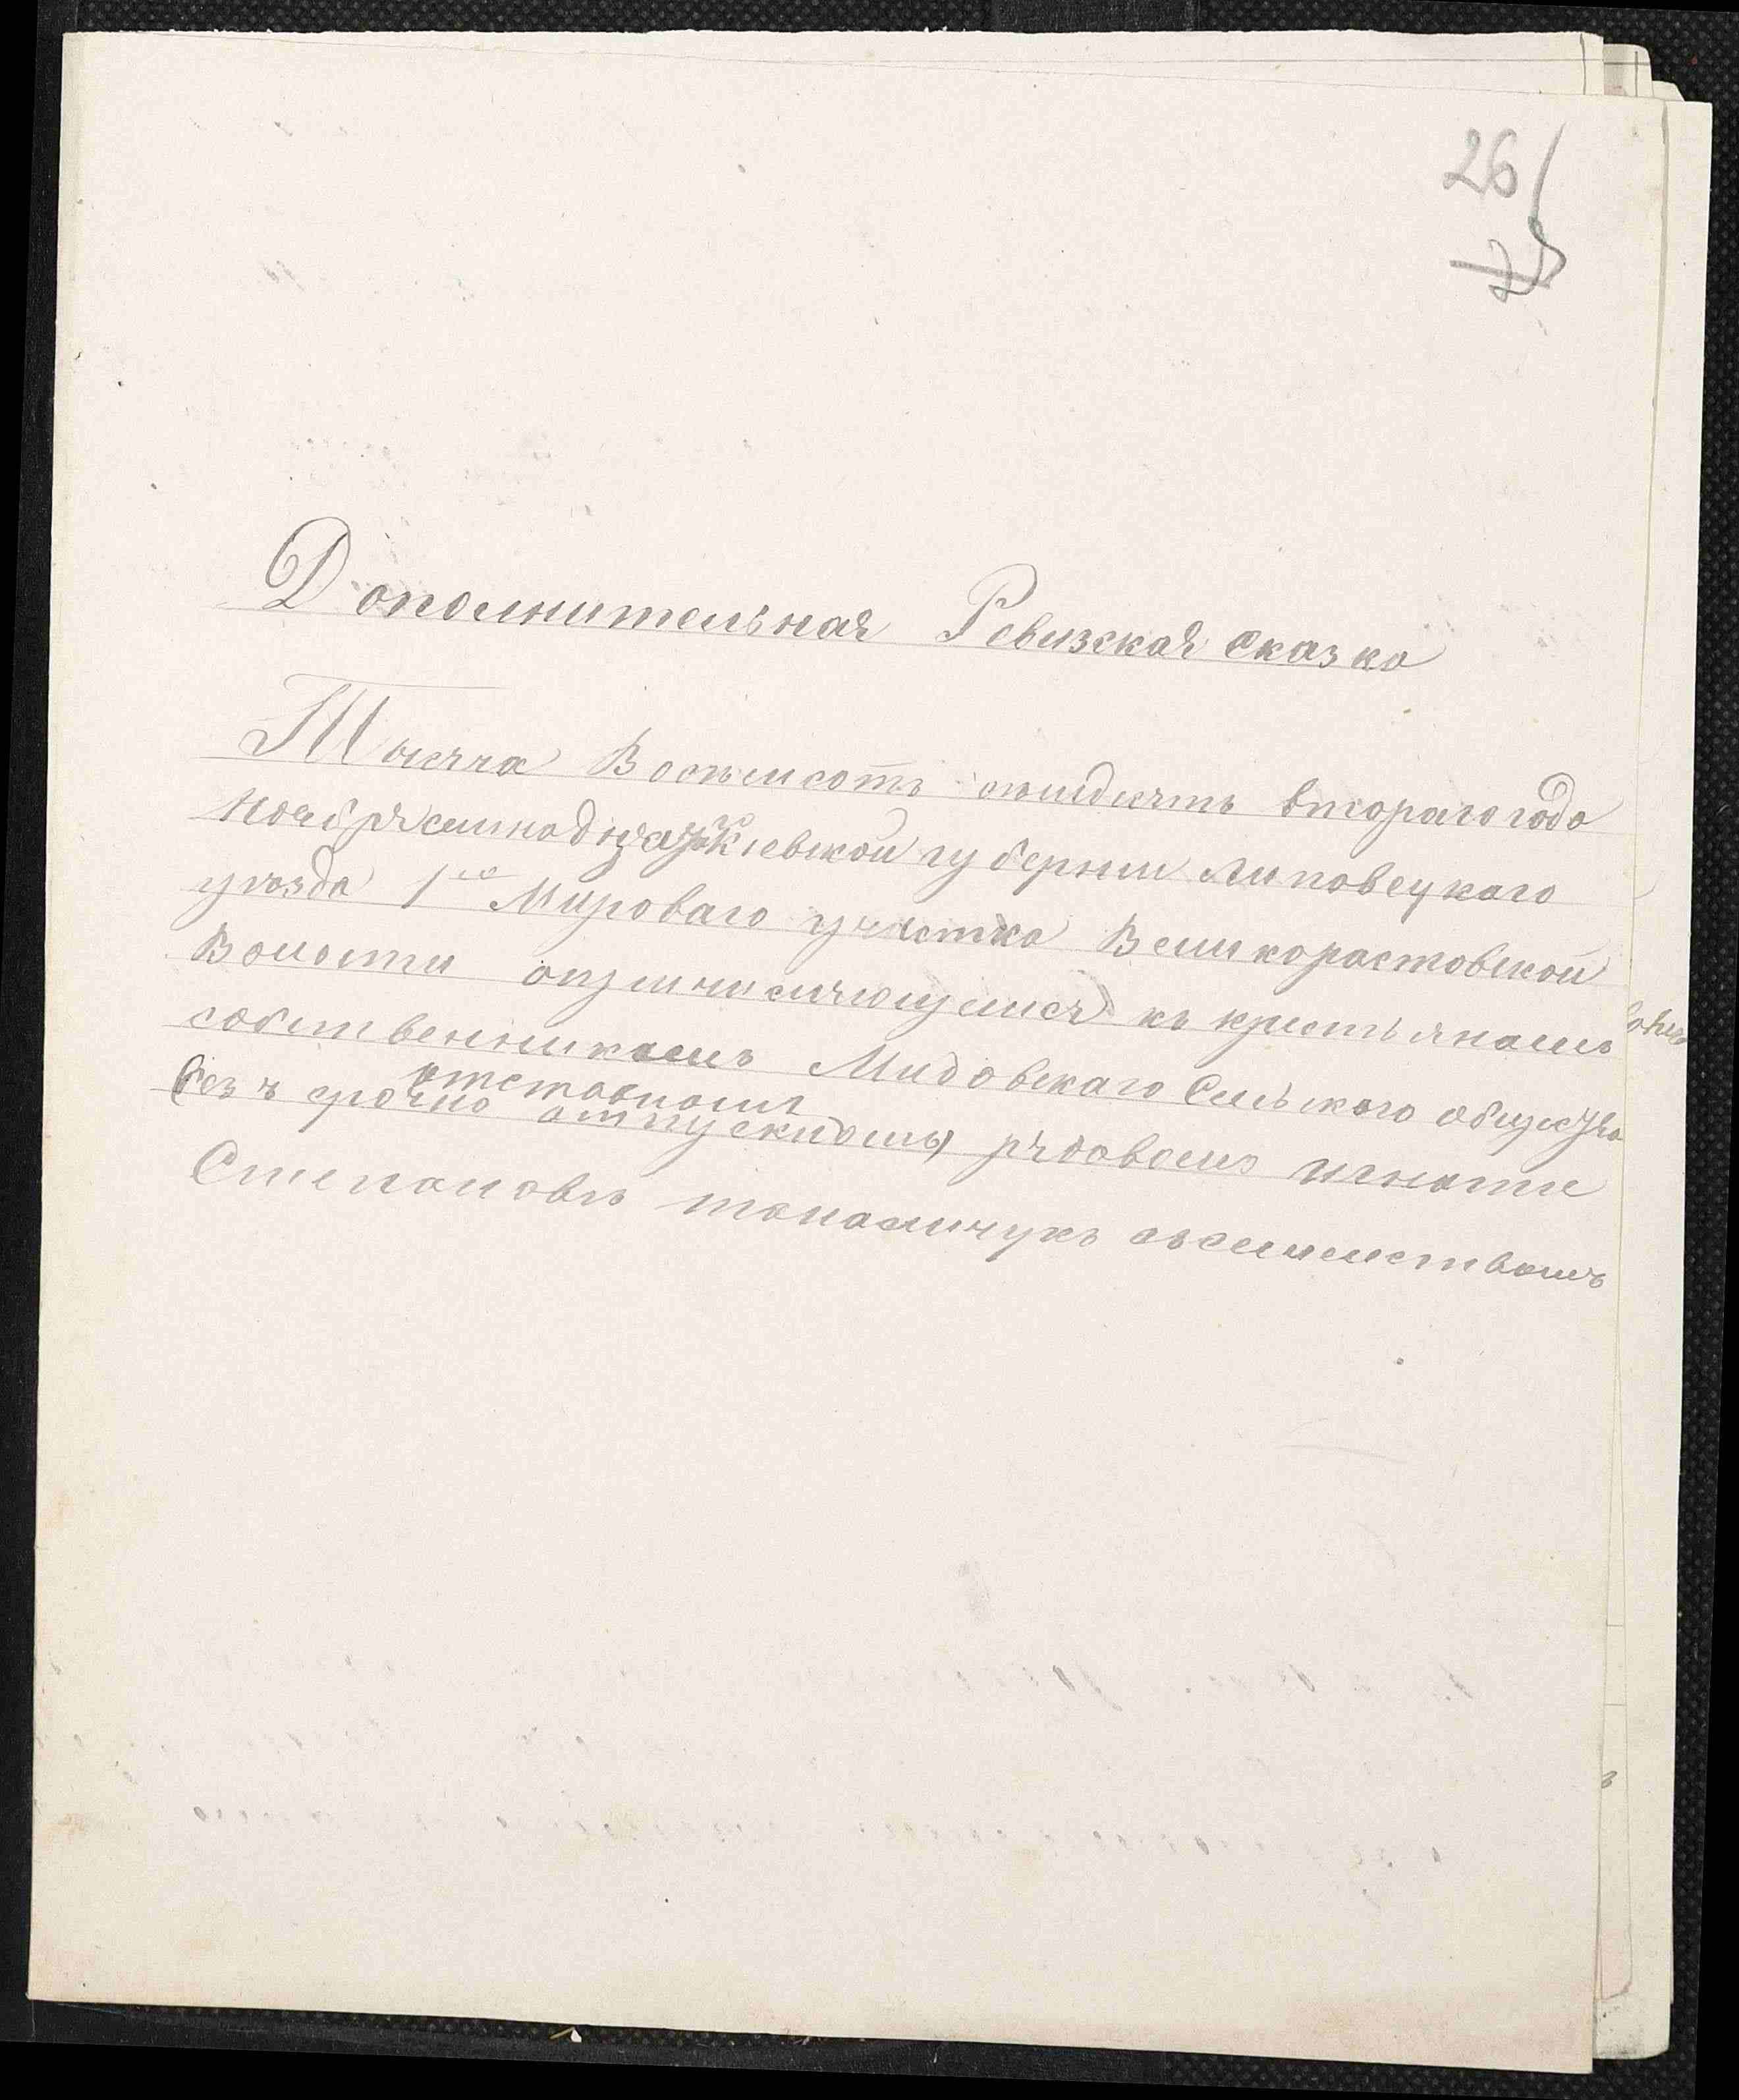 26
25
Дополнительная Ревизская Сказка
Тысяча Восемсотъ семдисятъ втораго года
Ноября семнодцатаго Кіевской губерніи Липовецкаго
уезда 1го Мироваго участка Великоростовской
Волости къ крестьянамъ
собственникамъ Мидовскаго Сельскаго общества
отставной
безъ срочно отпускномъ рядовомъ игнате
Степановѣ съ семиествомъ